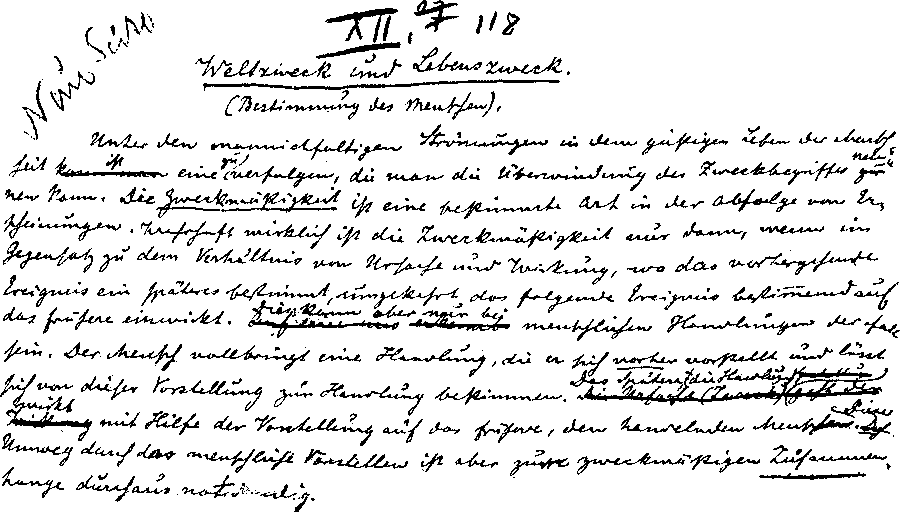 XII, 118
Weltzweck und Lebenszweck.
(Bestimmung des Menschen).
Unter den mannichfaltigen Strömungen in dem geistigen Leben der Mensch-
heit ist eine zu verfolgen, die man die Überwindung des Zweckbegriffes nen-
nen kann. Die Zweckmäßigkeit ist eine bestimmte Art in der Abfolge von Er-
scheinungen. Wahrhaft wirklich ist die Zweckmäßigkeit nur dann, wenn im
Gegensatz zu dem Verhältnis von Ursache und Wirkung, wo das vorhergehende
Ereignis ein späteres bestimmt, umgekehrt das folgende Ereignis bestimmend auf
das frühere einwirkt. Dies kann aber nur bei menschlichen Handlungen der Fall
sein. Der Mensch vollbringt eine Handlung, die er sich vorher vorstellt und lässt
sich von dieser Vorstellung zur Handlung bestimmen. Das Spätere, die Handlung
wirkt mit Hilfe der Vorstellung auf das frühere, den handelnden Menschen. Dieser
Umweg durch das menschliche Vorstellen ist aber zum zweckmäßigen Zusammen-
hange durchaus notwendig.